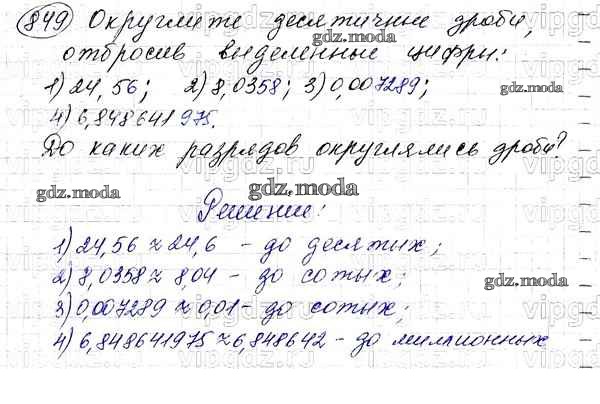 849 Округлите десятичные дроби,
отбросив выделенные цифры:
1) 24,56; 2) 8,0358; 3) 0,007289;
4) 6,848641975.
До каких разрядов округлялись дроби?
Решение:
1) 24,56 ≈ 24,6 - до десятых;
2) 8,0358 ≈ 8,04 - до сотых;
3) 0,007289 ≈ 0,01 - до сотых;
4) 6,848641975 ≈ 6,848642 - до миллионных
gdz.moda
gdz.moda
gdz.moda
gdz.moda
gdz.moda
gdz.moda